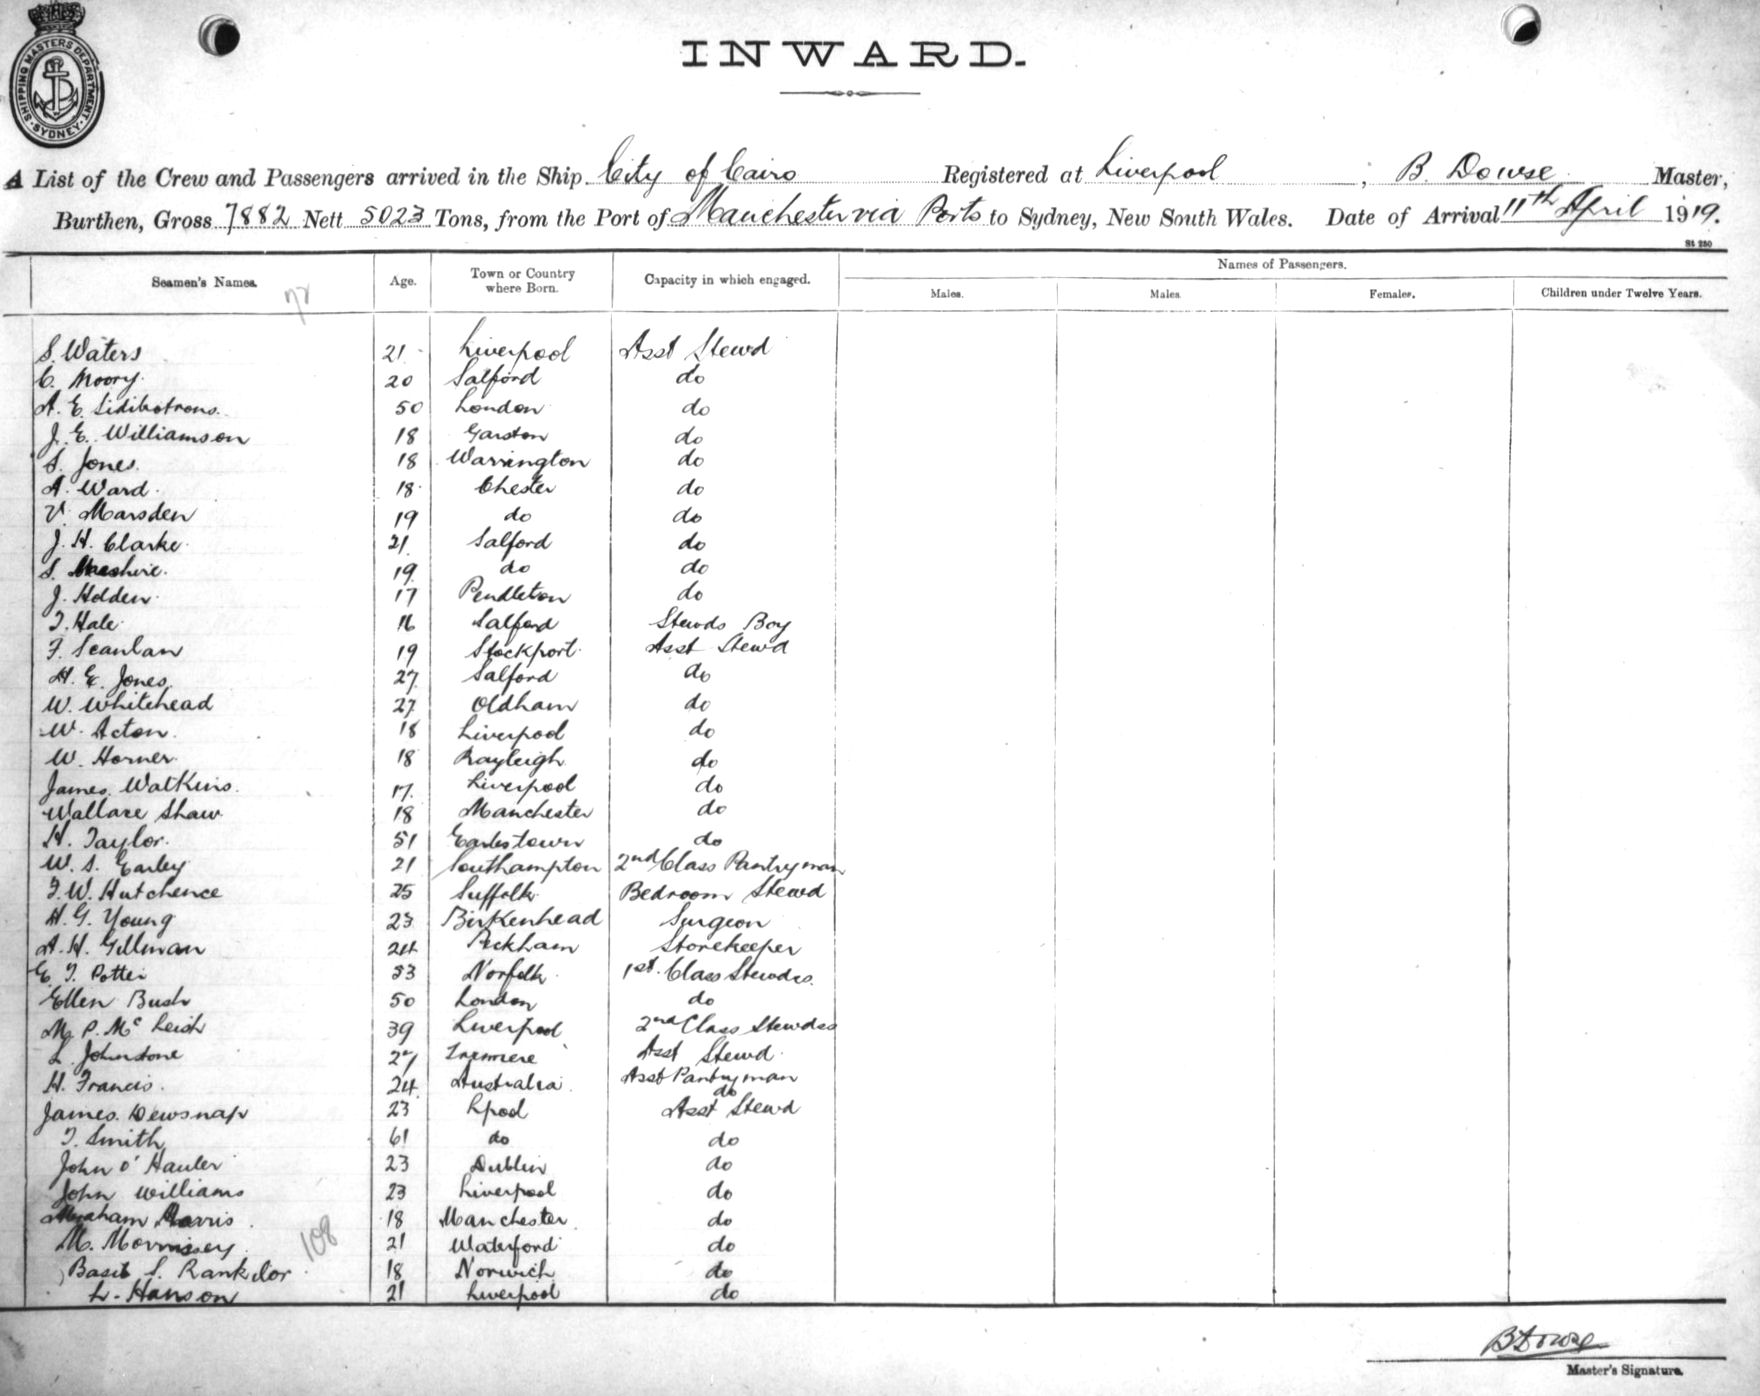 SHIPPING MASTERS DEPARTMENT
SYDNEY
INWARD.
A List of the Crew and Passengers arrived in the Ship City of Cairo Registered at Liverpool, B. Dowse Master,
Burthen, Gross 7882 Nett 5023 Tons, from the Port of Manchester via Ports to Sydney, New South Wales. Date of Arrival 11th April 1919.
St 250
Seamen's Names. Age. Town or Country where Born. Capacity in which engaged. Names of Passengers.
Males. Males. Females. Children under Twelve Years.
72
S. Waters 21 Liverpool Asst Stewd
C. Moory. 20 Salford do
A. E. 50 London do
J. E. Williamson 18 Garston do
S. Jones. 18 Warrington do
A. Ward. 18 Chester do
V. Marsden 19 do do
J. H. Clarke. 21 Salford do
S. 19 do do
J. Holden. 17 Pendleton do
T. Hale 16 Salford Stewds Boy
F. Scanlan 19 Stockport Asst Stewd
H. E. Jones. 27 Salford do
W. Whitehead 27 Oldham do
W. Acton. 18 Liverpool do
W. Horner. 18 Rayleigh do
James. Watkins. 17. Liverpool do
Wallace Shaw 18 Manchester do
H. Taylor. 51 Earlestown do
W. S. Earley 21 Southampton 2nd Class Pantryman
F. W. Hutchence 25 Suffolk. Bedroom Stewd
H. G. Young 23 Birkenhead Surgeon
A. H. Gillman 24 Peckham Storekeeper
E. T. Potter 33 Norfolk 1st. Class Stewdss.
Ellen Bush 50 London do
M. P. Mc Leish 39 Liverpool 2nd Class Stewdss
L. Johnstone 27 Tranmere Asst Stewd.
H. Francis. 24 Australia Asst Pantryman
do
James. Dewsnap 23 Lpool Asst Stewd
T. Smith 61 do do
John O' 23 Dublin do
John Williams 23 Liverpool do
Abraham Harris. 18 Manchester do
M. Morrissey 21 Waterford do
108
Basil S. Rankilor 18 Norwich do
L. Hanson 21 Liverpool do
B Dowse
Master's Signature.